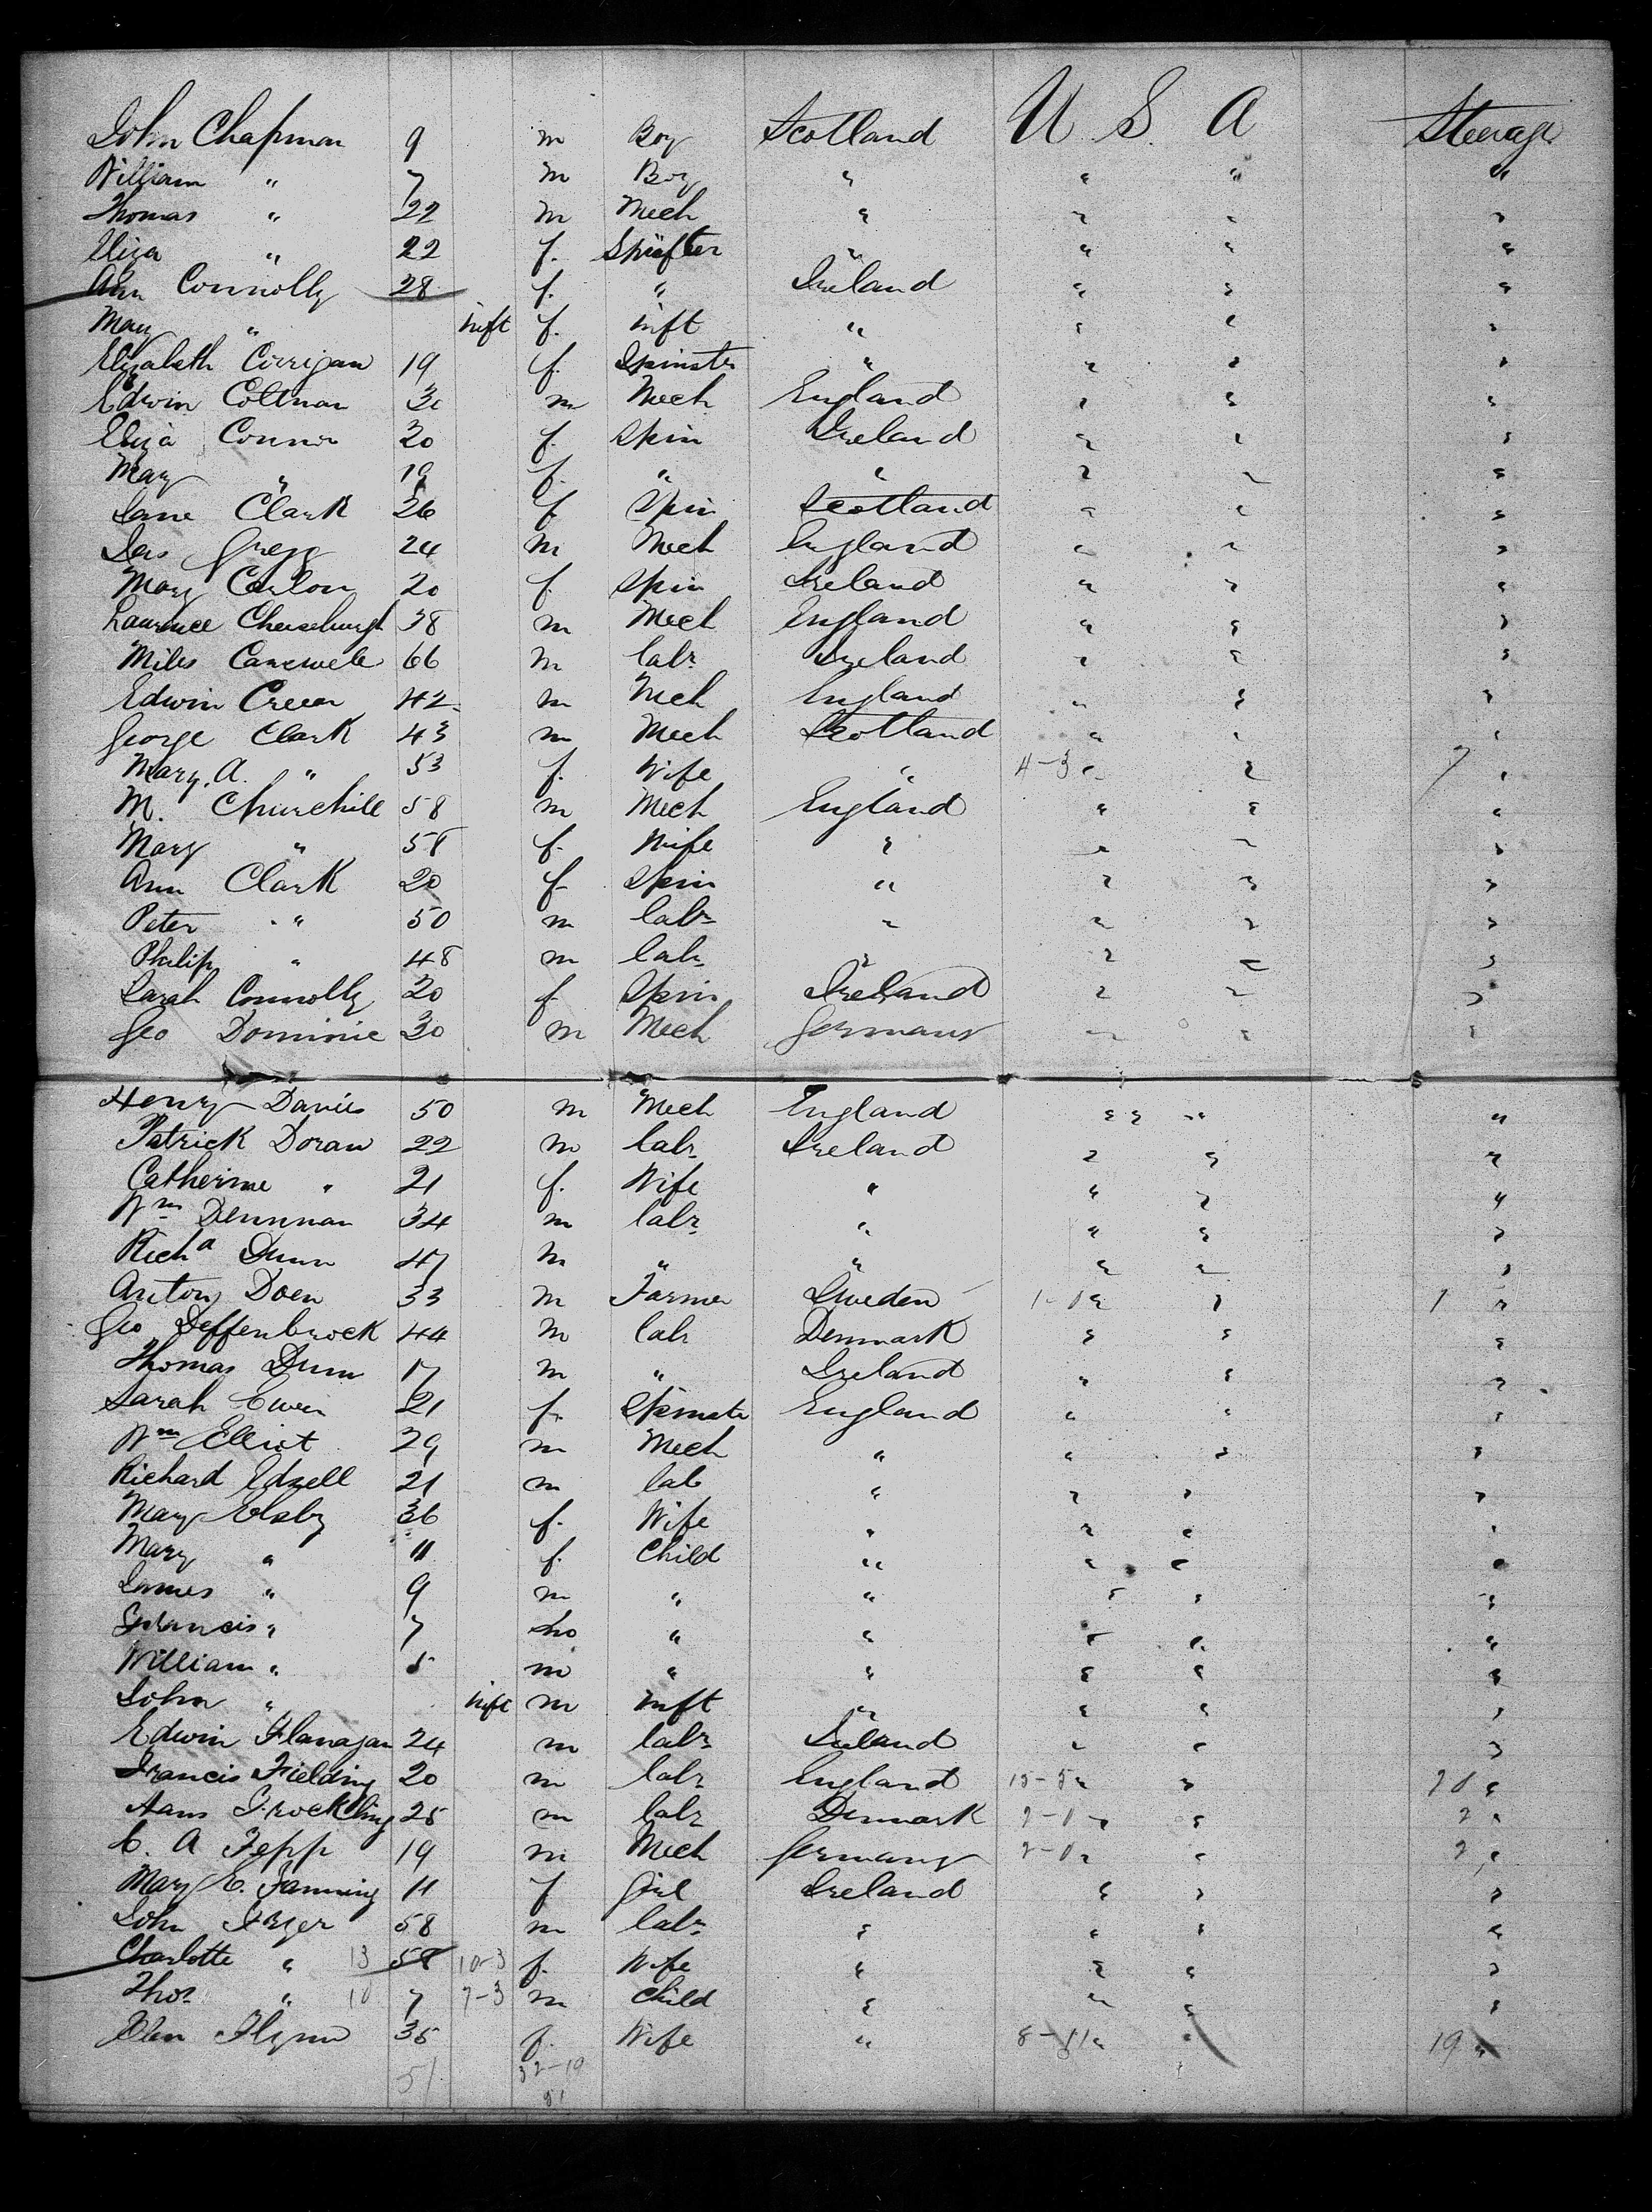 John Chapman 9 m Boy Scotland U S A Steerage
William " 7 m Boy " " " "
Thomas " 22 m Mech " " " "
Eliza " 22 f. Spinster " " " "
Ann Connolly 28 f. " Ireland " " "
Mary " inft f. inft " " " "
Elizabeth Corrigan 19 f. Spinster " " " "
Edwin Coltman m Mech England " " "
Eliza Connor 20 f. Spin Ireland " " "
Mary " 19 f. " " " " "
Jane Clark 26 f Spin Scotland " " "
Jas Gregg 24 m Mech England " " "
Mary Conlon 20 f. Spin Ireland " " "
Laurence 38 m Mech England " " "
Miles 66 m labr Ireland " " "
Edwin 42 m Mch England " " "
George Clark 43 m Mech Scotland " " "
Mary. A. " 53 f. Wife " 4-3 " " 7 "
M. Churchill 58 m Mech England " " "
Mary " 58 f. Wife " " " "
Ann Clark 20 f Spin " " " "
Peter " 50 m labr " " " "
Philip " 48 m labr " " " "
Sarah Connolly 20 f Spin Ireland " " "
Geo Dominic 30 m Mech Germany " " "
Henry Davies 50 m Mech England " " "
Patrick Doran 22 m labr Ireland " " "
Catherine " 21 f. Wife " " " "
Wm Dennnan 34 m labr " " " "
Richd Dunn 47 m " " " " "
Anton Doen 33 m Farmer Sweden 1-0 " " 1 "
Geo Deffenbrock 44 m labr Denmark " " "
Thomas Dunn 17 m " Ireland " " "
Sarah Ewen 21 f. Spinster England " " "
Wm Elliot 29 m Mech " " " "
Richard Edzell 21 m lab " " " "
Mary Elsby 36 f. Wife " " " "
Mary " 11 f. Child " " " "
James " 9 m " " " " "
Francis " 7 m " " " " "
William " 5 m " " " " "
John " inft m inft " " " "
Edwin Flanagan 24 m labr Ireland " " "
Francis Fielding 20 m labr England 15-5 " " 20 "
Hans Frockling 25 m labr Denmark 2-0 " " 2 "
C. A Fepp 19 m Mech Germany 2-0 " " 2 "
Mary E. Fanning 11 f Girl Ireland " " "
John Fryer 58 m labr " " " "
Charlotte " 13 58 10-3 f. Wife " " " "
Thos " 10 7 7-3 m Child " " " "
Ellen Flynn 35 f. Wife " 8-11 " " 19 "
51 32-19
51